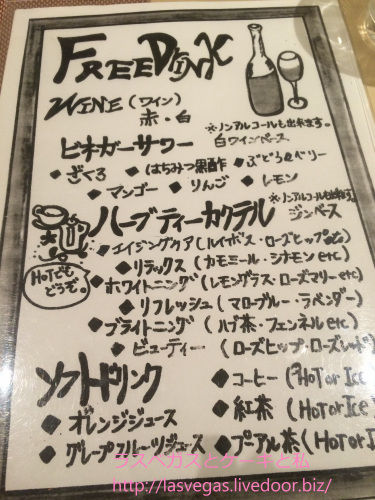 FREE DRINK
WINE (ワイン)
赤・白
※ノンアルコールも出来ます。
ビネガーサワー 白ワインベース
◆ざくろ ◆はちみつ黒酢 ◆ぶどう&ベリー
◆マンゴー ◆りんご ◆レモン
※ノンアルコールも出来ます
ハーブティーカクテル ジンベース
◆エイジングケア (ルイボス・ローズヒップetc)
◆リラックス (カモミール・シナモン etc)
HOTでもどうぞ
◆ホワイトニング (レモングラス・ローズマリー etc)
◆リフレッシュ (マローブルー・ラベンダー)
◆ブライトニング (ハブ茶・フェンネル etc)
◆ビューティー (ローズヒップ・ローズレッド
ソフトドリンク
◆オレンジジュース
◆グレープフルーツジュース
◆コーヒー (HOT or Ice
◆紅茶 (HOT or Ice
◆プーアル茶 (HOT or I
ラスベガスとケーキと私
http://lasvegas.livedoor.biz/